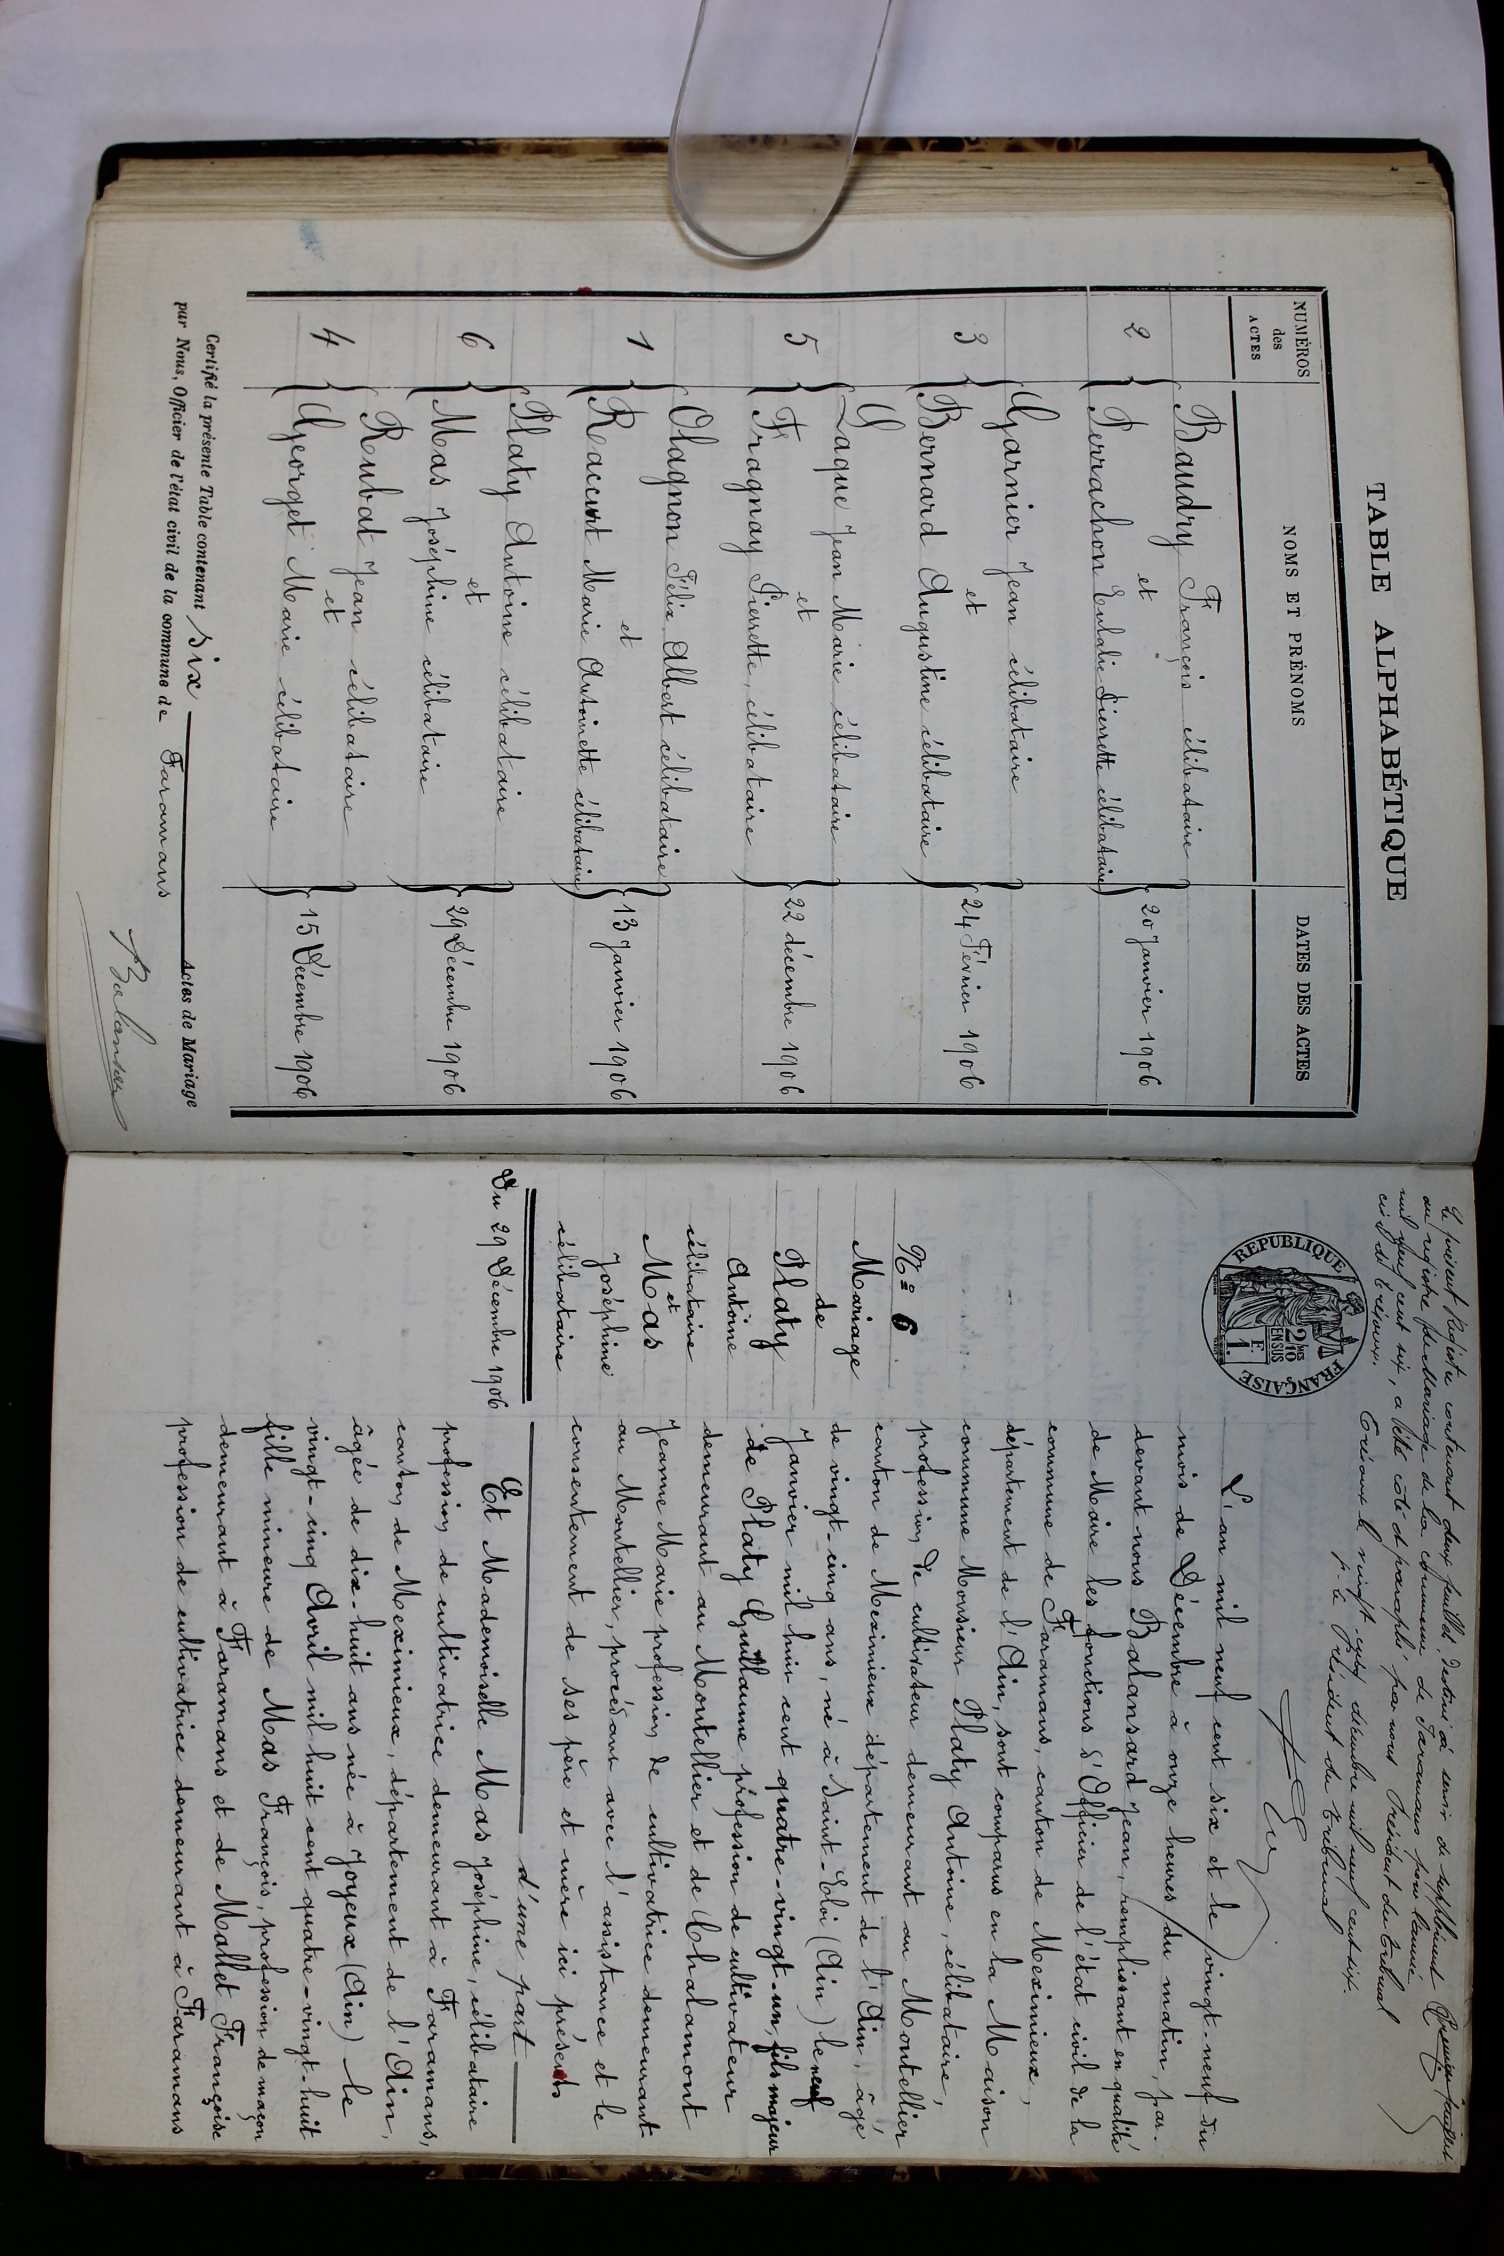 TABLE ALPHABÉTIQUE
NUMÉROS
des
ACTES
NOMS ET PRÉNOMS
DATES DES ACTES
Baudry François célibataire
2 et 20 Janvier 1906
Perrachon Eulalie Pierrette célibataire
Garnier Jean célibataire
3 et 24 Février 1906
Bernard Augustine célibataire
Lague Jean Marie célibataire
5 et 22 décembre 1906
Fragnay Pierrette, célibataire
Olagnon Félix Albert célibataire
1 et 13 Janvier 1906
Raccurt Marie Antoinette célibataire
Platy Antoine célibataire
6 et 29 Décembre 1906
Mas Joséphine célibataire
Rubat Jean célibataire
4 et 15 Décembre 1906
Georget Marie célibataire
Certifié la présente Table contenant six Actes de Mariage
par Nous, Officier de l'état civil de la commune de Faramans
Balansard
Le présent registre contenant deux feuillets, destiné à servir de supplément Premier feuillet
au registre de Mariage de la commune de Faramans pour l'année
mil neuf cent six, a été coté et paraphé par nous Président du tribunal
civil de Trévoux.
Trévoux le vingt-cinq décembre mil neuf cent six.
p. le Président du tribunal
REPUBLIQUE FRANÇAISE
2/10
EN SUS
1 F.
N° 6
Mariage
de
Platy
Antoine
célibataire
et
Mas
Joséphine
célibataire
Du 29 Décembre 1906
L'an mil neuf cent six et le vingt-neuf du
mois de Décembre à onze heures du matin, par-
devant nous Balansard Jean, remplissant en qualité
de Maire les fonctions d'Officier de l'état civil de la
commune de Faramans, canton de Meximieux,
département de l'Ain, sont comparus en la Maison
commune Monsieur Platy Antoine, célibataire,
profession de cultivateur demeurant au Montellier
canton de Meximieux département de l'Ain, âgé
de vingt-cinq ans, né à Saint-Eloi (Ain) le neuf
Janvier mil huit cent quatre-vingt-un, fils majeur
de Platy Guillaume profession de cultivateur
demeurant au Montellier et de Chalamont
Jeanne Marie profession de cultivatrice demeurant
au Montellier, procédant avec l'assistance et le
consentement de ses père et mère ici présents
d'une part
Et Mademoiselle Mas Joséphine, célibataire
profession de cultivatrice demeurant à Faramans,
canton de Meximieux, département de l'Ain,
âgée de dix-huit ans née à Joyeux (Ain) le
vingt-cinq Avril mil huit cent quatre-vingt-huit
fille mineure de Mas François, profession de maçon
demeurant à Faramans et de Mallet Françoise
profession de cultivatrice demeurant à Faramans